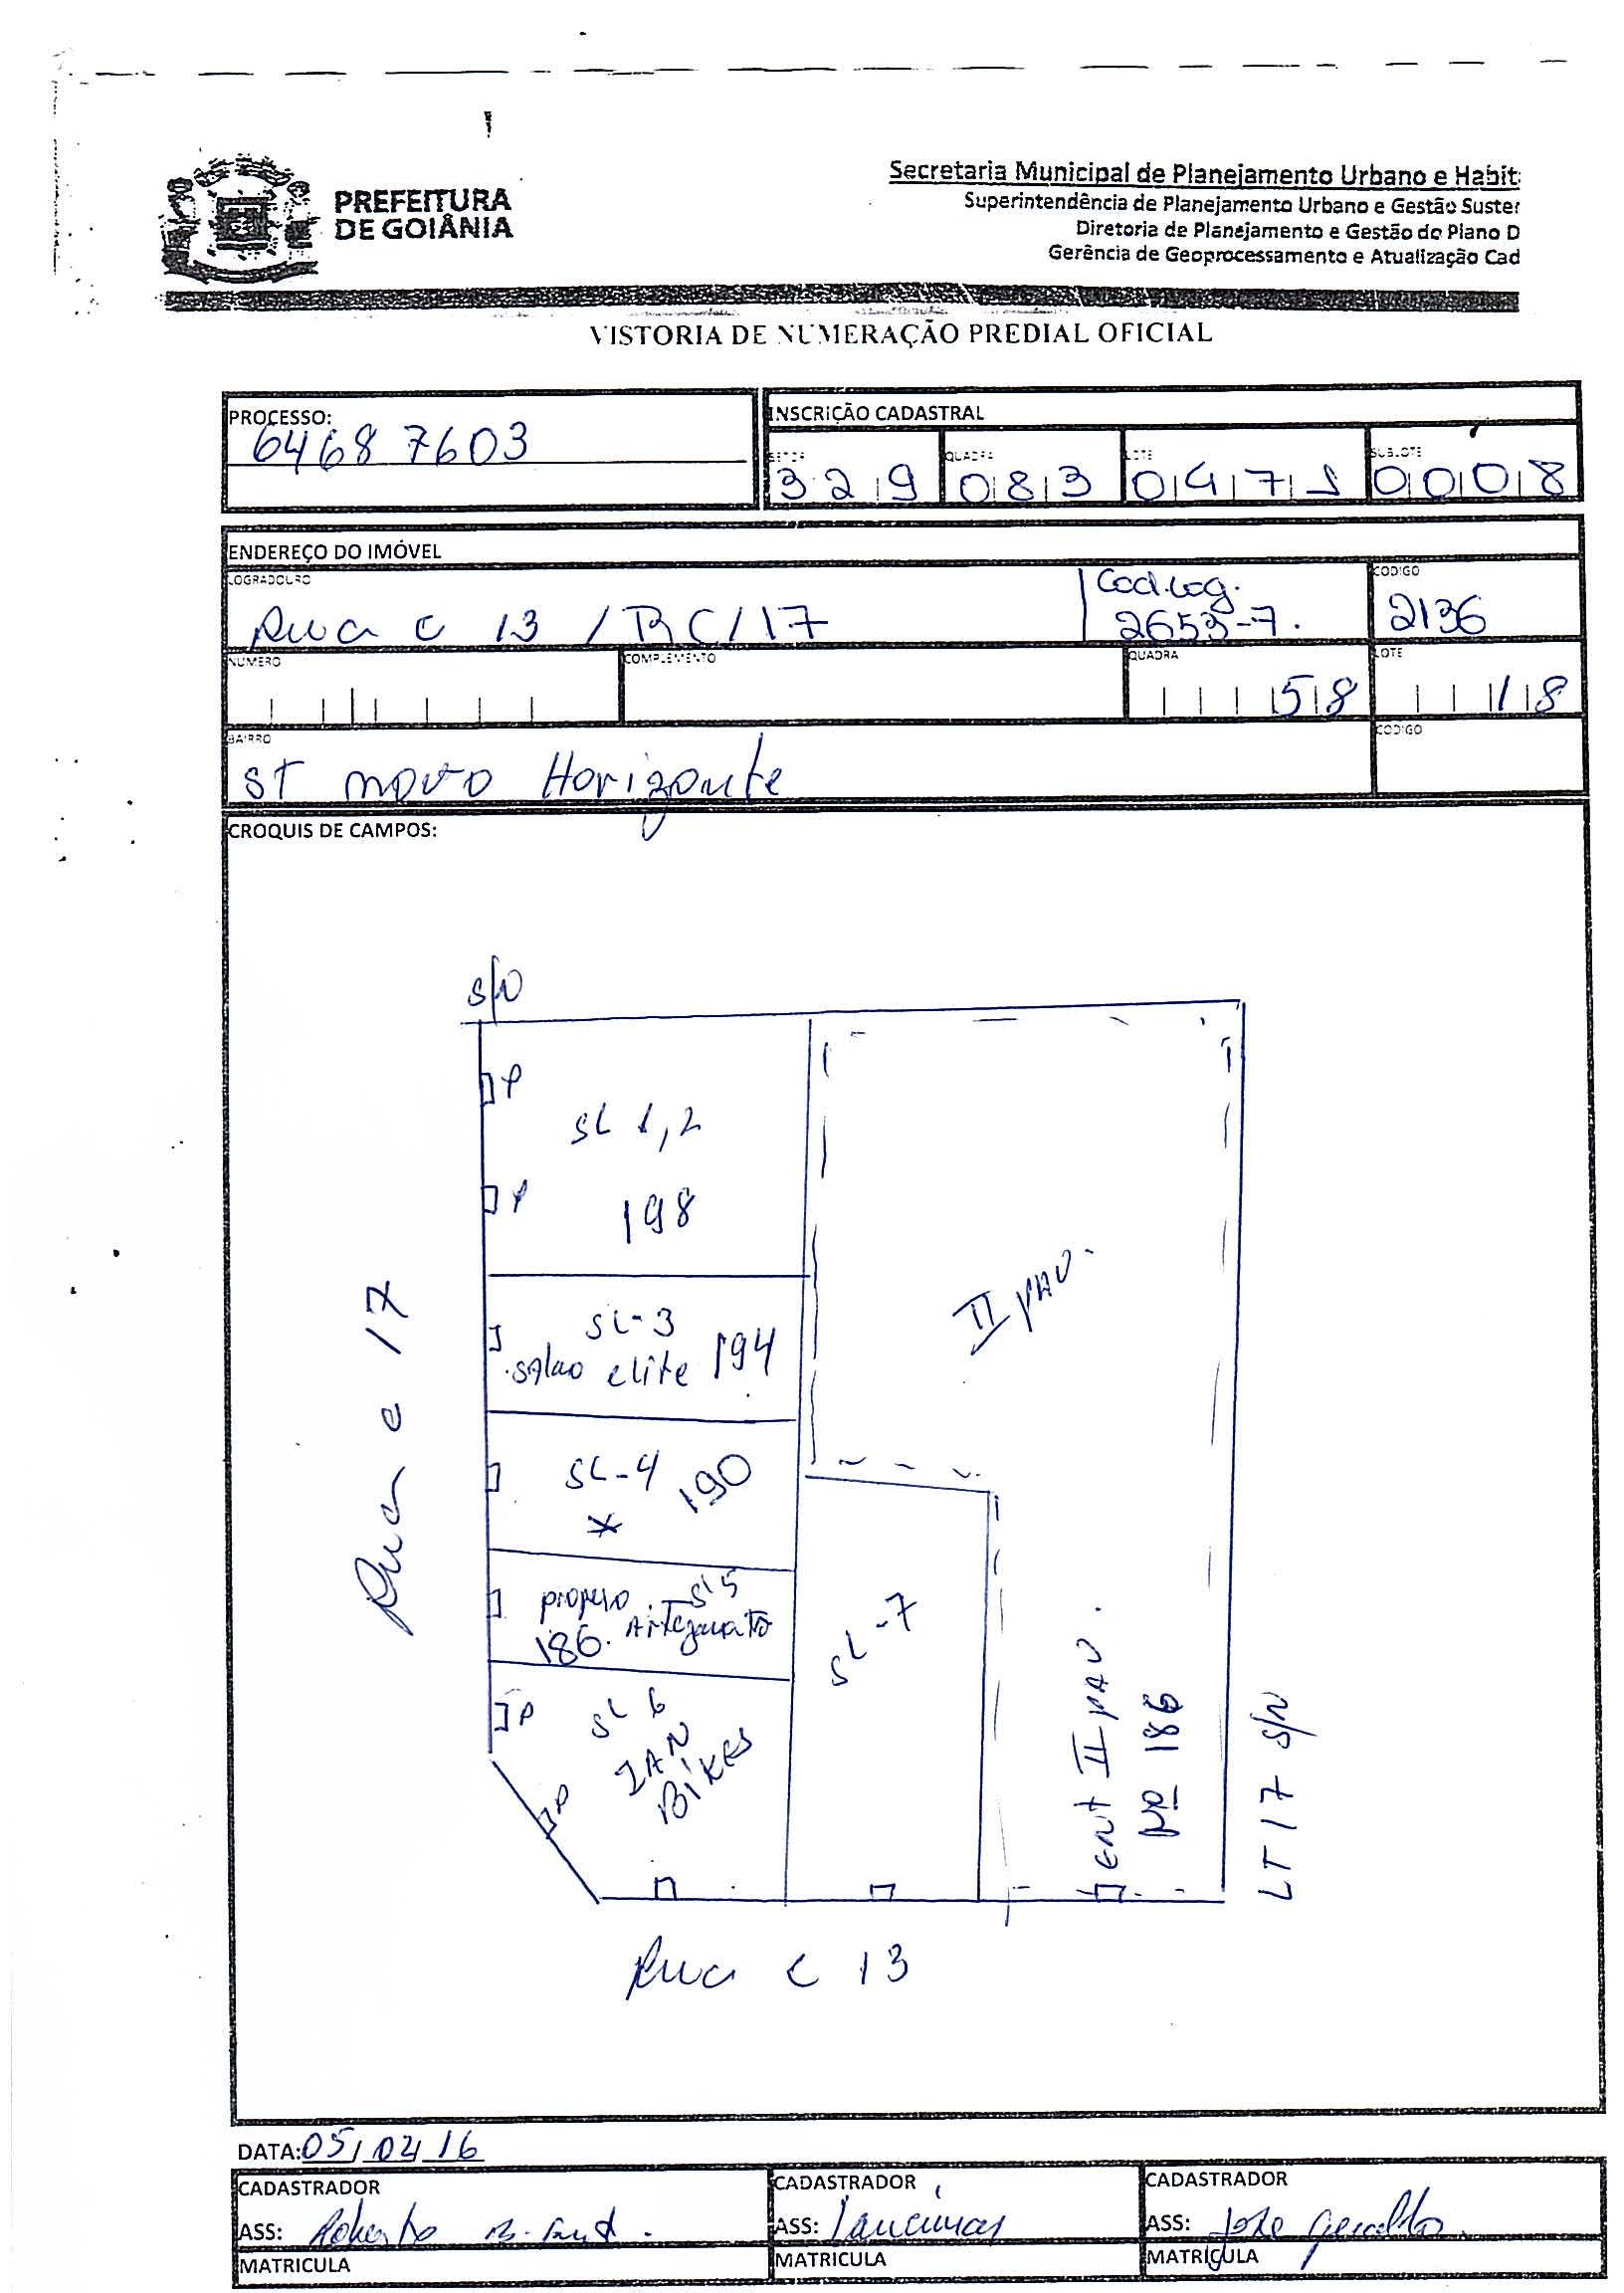 PREFEITURA
DE GOIÂNIA
Secretaria Municipal de Planejamento Urbano e Habit
Superintendência de Planejamento Urbano e Gestão Suster
Diretoria de Planejamento e Gestão do Plano D
Gerência de Geoprocessamento e Atualização Cad
VISTORIA DE NUMERAÇÃO PREDIAL OFICIAL
PROCESSO:
6468 7603
INSCRIÇÃO CADASTRAL
SETOR
QUADRA
LOTE
SUBLOTE
329
083
0471
0008
ENDEREÇO DO IMÓVEL
LOGRADOURO
Rua c 13 / RC/17
Cod.Log.
2653-7.
CODIGO
2136
NUMERO
COMPLEMENTO
QUADRA
58
LOTE
18
BAIRRO
ST novo Horizonte
CODIGO
CROQUIS DE CAMPOS:
s/N
P
SL 1,2
P
198
SL-3
salao elite 194
SL-4 190
II PAV.
Rua c 17
Sl 5
186.
SL-7
P
SL 6
P
BIKES
ent II PAV.
Nº 186
LT 17 S/N
Rua c 13
DATA: 05/02/16
CADASTRADOR
CADASTRADOR
CADASTRADOR
ASS: Roberto
ASS:
ASS: José Geraldo
MATRICULA
MATRICULA
MATRICULA